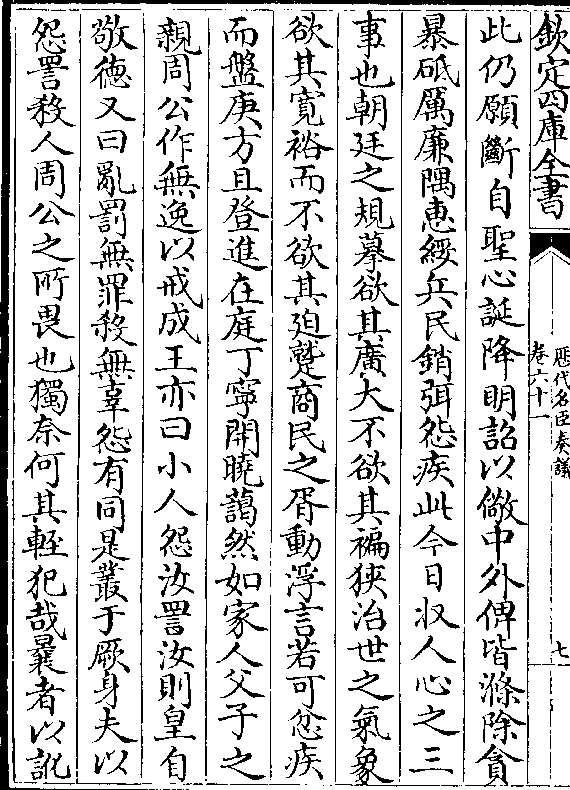 欽定四庫全書
歷代名臣奏議
卷六十一
七
此仍願斷自聖心誕降明詔以儆中外俾皆滌除貪
暴砥厲廉隅惠綏兵民銷弭怨疾此今日收人心之三
事也朝廷之規摹欲其廣大不欲其褊狹治世之氣象
欲其寛裕而不欲其廹蹙商民之胥動浮言若可忿疾
而盤庚方且登進在庭丁寧開曉藹然如家人父子之
親周公作無逸以戒成王亦曰小人怨汝詈汝則皇自
敬徳又曰亂罰無罪殺無辜怨有同是叢于厥身夫以
怨詈殺人周公之所畏也獨奈何其輕犯哉曩者以訛